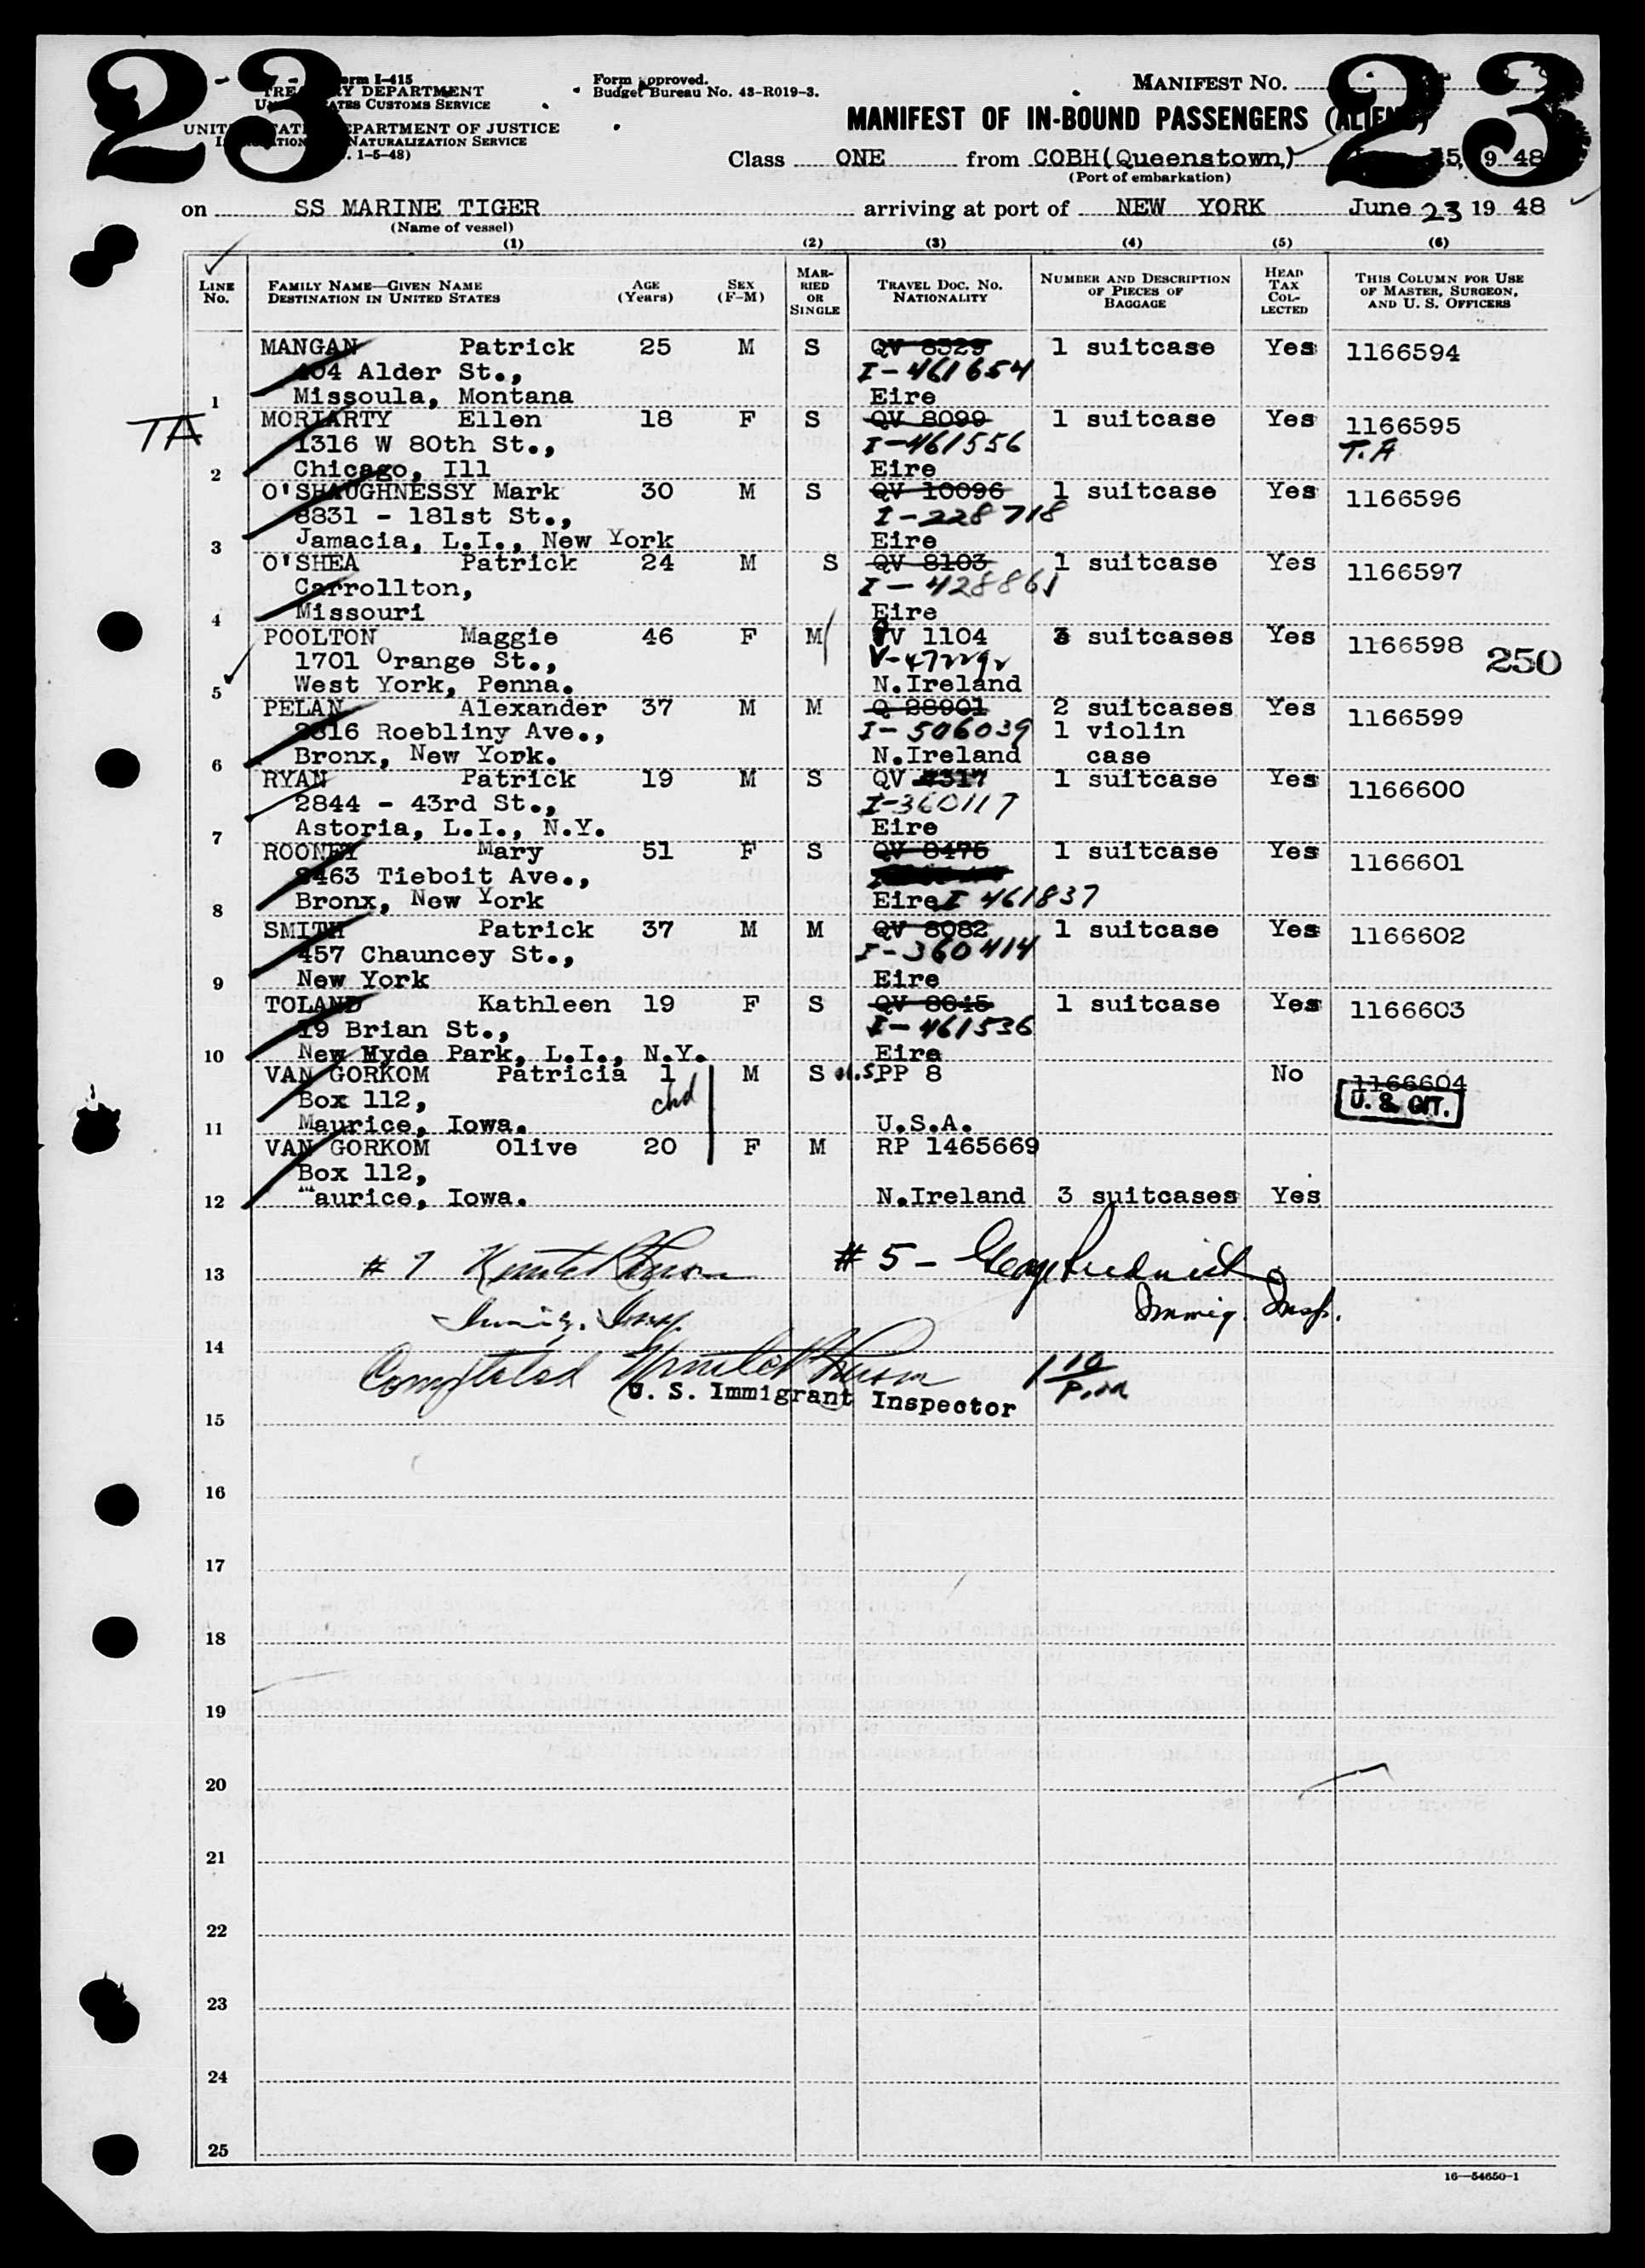 23
23
Form I-415
TREASURY DEPARTMENT
UNITED STATES CUSTOMS SERVICE
UNITED STATES DEPARTMENT OF JUSTICE
IMMIGRATION AND NATURALIZATION SERVICE
1-5-48)
Form approved.
Budget Bureau No. 43-R019-3.
MANIFEST NO.
MANIFEST OF IN-BOUND PASSENGERS (ALIENS)
Class ONE from COBH(Queenstown,) 15, 19 48
(Port of embarkation)
on SS MARINE TIGER arriving at port of NEW YORK June 23 19 48
(Name of vessel)
(1) (2) (3) (4) (5) (6)
LINE NO. FAMILY NAME—GIVEN NAME DESTINATION IN UNITED STATES AGE (Years) SEX (F-M) MARRIED OR SINGLE TRAVEL DOC. NO. NATIONALITY NUMBER AND DESCRIPTION OF PIECES OF BAGGAGE HEAD TAX COLLECTED THIS COLUMN FOR USE OF MASTER, SURGEON, AND U. S. OFFICERS
MANGAN Patrick 25 M S QV 8329 1 suitcase Yes 1166594
404 Alder St., I-461654
1 Missoula, Montana Eire
TA MORIARTY Ellen 18 F S QV 8099 1 suitcase Yes 1166595
1316 W 80th St., I-461556 T.A
2 Chicago, Ill Eire
O'SHAUGHNESSY Mark 30 M S QV 10096 1 suitcase Yes 1166596
8831 - 181st St., I-228718
3 Jamacia, L.I., New York Eire
O'SHEA Patrick 24 M S QV 8103 1 suitcase Yes 1166597
Carrollton, I-428861
4 Missouri Eire
POOLTON Maggie 46 F M QV 1104 3 suitcases Yes 1166598 250
1701 Orange St.,
5 West York, Penna. N.Ireland
PELAN Alexander 37 M M Q 28901 2 suitcases Yes 1166599
2816 Roebliny Ave., I-506039 1 violin
6 Bronx, New York. N.Ireland case
RYAN Patrick 19 M S QV 4317 1 suitcase Yes 1166600
2844 - 43rd St., I-360117
7 Astoria, L.I., N.Y. Eire
ROONEY Mary 51 F S QV 8475 1 suitcase Yes 1166601
2463 Tieboit Ave.,
8 Bronx, New York Eire I 461837
SMITH Patrick 37 M M QV 8082 1 suitcase Yes 1166602
457 Chauncey St., I-360414
9 New York Eire
TOLAND Kathleen 19 F S QV 8045 1 suitcase Yes 1166603
19 Brian St., I-461536
10 New Hyde Park, L.I., N.Y. Eire
VAN GORKOM Patricia 1 M S U.S. PP 8 No 1166604
Box 112, chd U.S. CIT.
11 Maurice, Iowa. U.S.A.
VAN GORKOM Olive 20 F M RP 1465669
Box 112,
12 Maurice, Iowa. N.Ireland 3 suitcases Yes
13 # 7 # 5 -
Immig. Insp. Immig. Insp.
14
Completed 1 10 P.M
U. S. Immigrant Inspector
15
16
17
18
19
20
21
22
23
24
25
16—54650-1